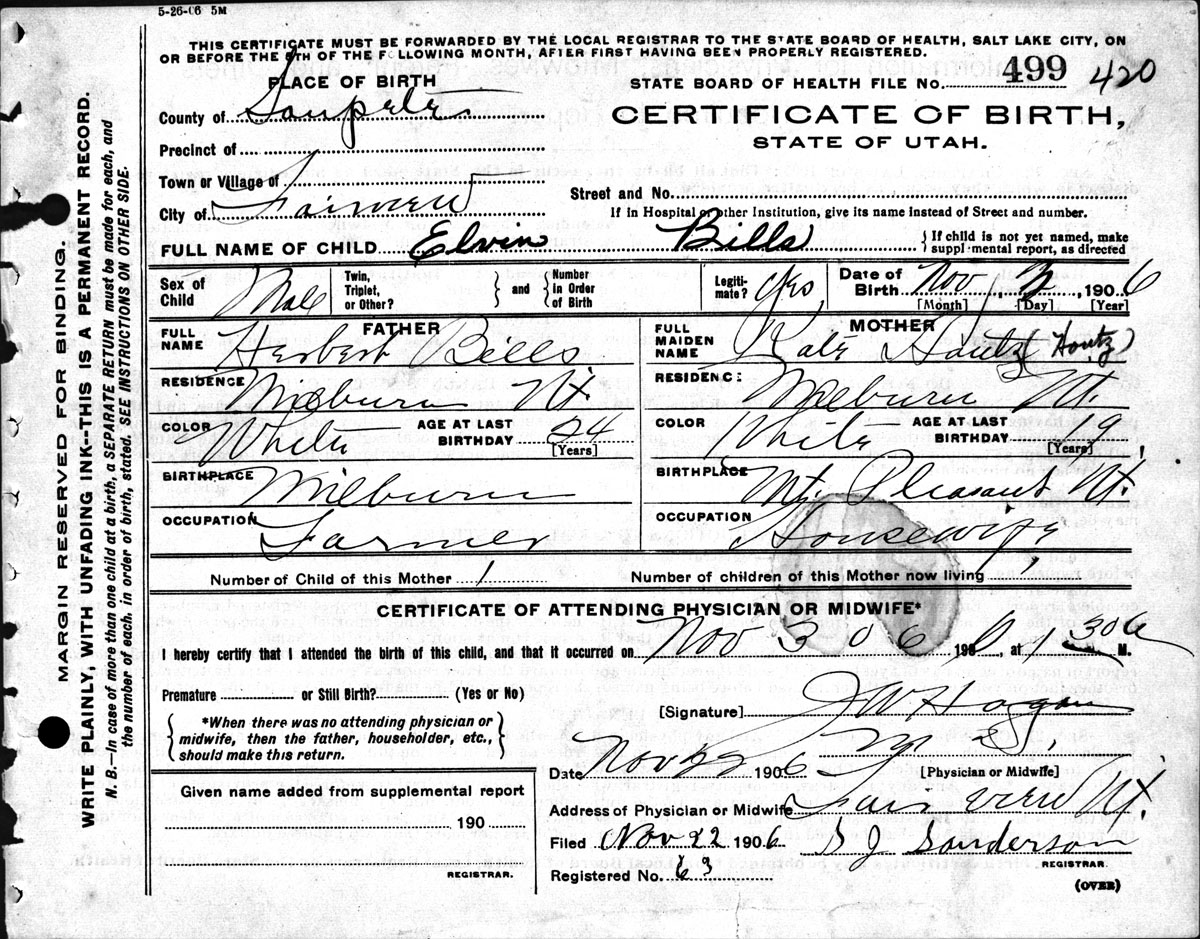 5-26-06 5M
THIS CERTIFICATE MUST BE FORWARDED BY THE LOCAL REGISTRAR TO THE STATE BOARD OF HEALTH, SALT LAKE CITY, ON
OR BEFORE THE 5TH OF THE FOLLOWING MONTH, AFTER FIRST HAVING BEEN PROPERLY REGISTERED.
PLACE OF BIRTH
STATE BOARD OF HEALTH FILE No. 499 420
County of Sanpete
CERTIFICATE OF BIRTH,
STATE OF UTAH.
Precinct of
Town or Village of
Street and No.
City of Fairview
If in Hospital or other Institution, give its name instead of Street and number.
FULL NAME OF CHILD Elvin Bills
If child is not yet named, make
suppl·mental report, as directed
Sex of Child Male
Twin, Triplet, or Other?
and
Number in Order of Birth
Legiti- mate? Yes
Date of Birth Nov 3, 1906
[Month] [Day] [Year]
FATHER
FULL NAME Herbert Bills
RESIDENCE Milburn Ut
COLOR White AGE AT LAST BIRTHDAY 24
[Years]
BIRTHPLACE Milburn
OCCUPATION Farmer
MOTHER
FULL MAIDEN NAME Kate Houtz (Houtz)
RESIDENC: Milburn Ut.
COLOR White AGE AT LAST BIRTHDAY 19
[Years]
BIRTHPLACE Mt. Pleasant Ut.
OCCUPATION Housewife
Number of Child of this Mother 1
Number of children of this Mother now living 1
CERTIFICATE OF ATTENDING PHYSICIAN OR MIDWIFE*
I hereby certify that I attended the birth of this child, and that it occurred on Nov 3 06 190 at 1 30 M.
Premature or Still Birth? (Yes or No)
*When there was no attending physician or
midwife, then the father, householder, etc.,
should make this return.
[Signature]
Date Nov 22 1906
[Physician or Midwife]
Address of Physician or Midwife Fairview Ut.
Filed Nov 22 1906 S J Sanderson
REGISTRAR.
Registered No. 63
(OVER)
Given name added from supplemental report
190
REGISTRAR.
MARGIN RESERVED FOR BINDING.
WRITE PLAINLY, WITH UNFADING INK--THIS IS A PERMANENT RECORD.
N. B.—In case of more than one child at a birth, a SEPARATE RETURN must be made for each, and
the number of each, in order of birth, stated. SEE INSTRUCTIONS ON OTHER SIDE.